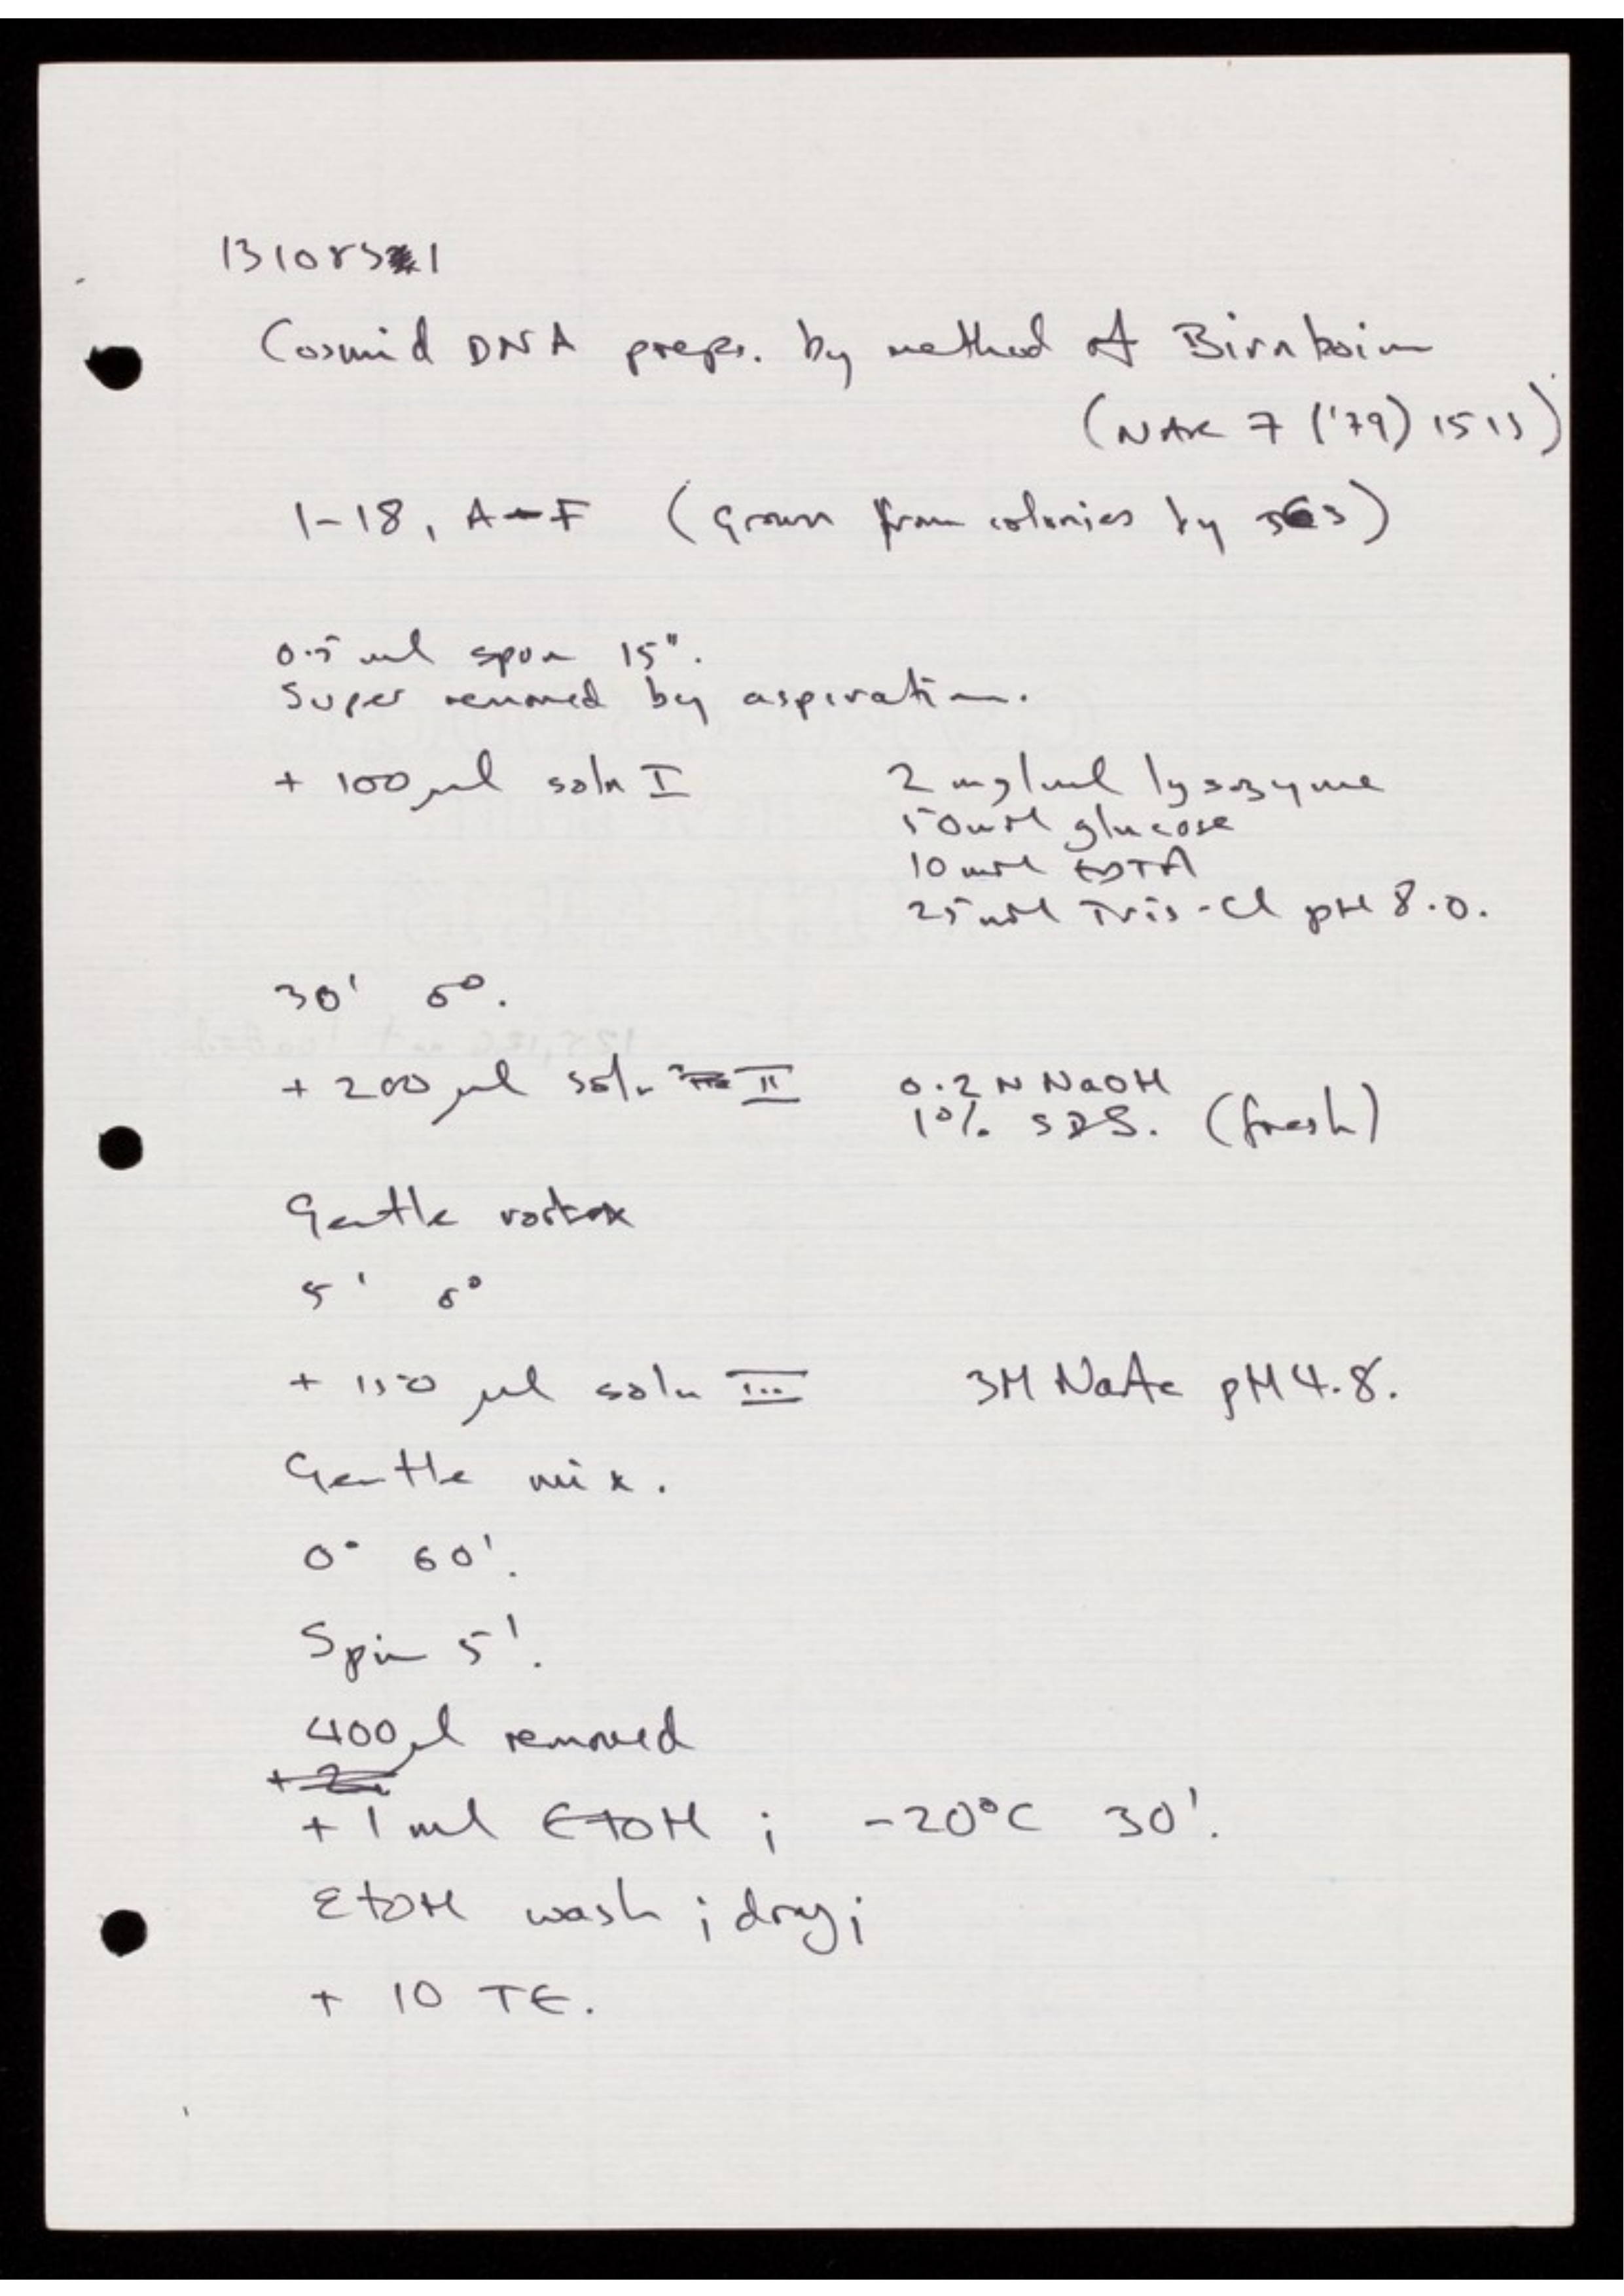 131083 1
Cosmid DNA preps. by method of Birnboim
(NAR 7 ('79) 1513)
1-18, A-F (Grown from colonies by JES)
0.5 ml spun 15".
Super removed by aspiration.
+ 100 µl soln I 2 mg/ml lysozyme
50mM glucose
10 mM EDTA
25 mM Tris-Cl pH 8.0.
30' 0°.
+ 200 µl soln II 0.2 N NaOH
1% SDS. (fresh)
Gentle vortex
5' 0°
+ 150 µl soln III 3M NaAc pH 4.8.
Gentle mix.
0° 60'.
Spin 5'.
400µl removed
+ 1 ml EtOH ; -20°C 30'.
EtOH wash ; dry ;
+ 10 TE.